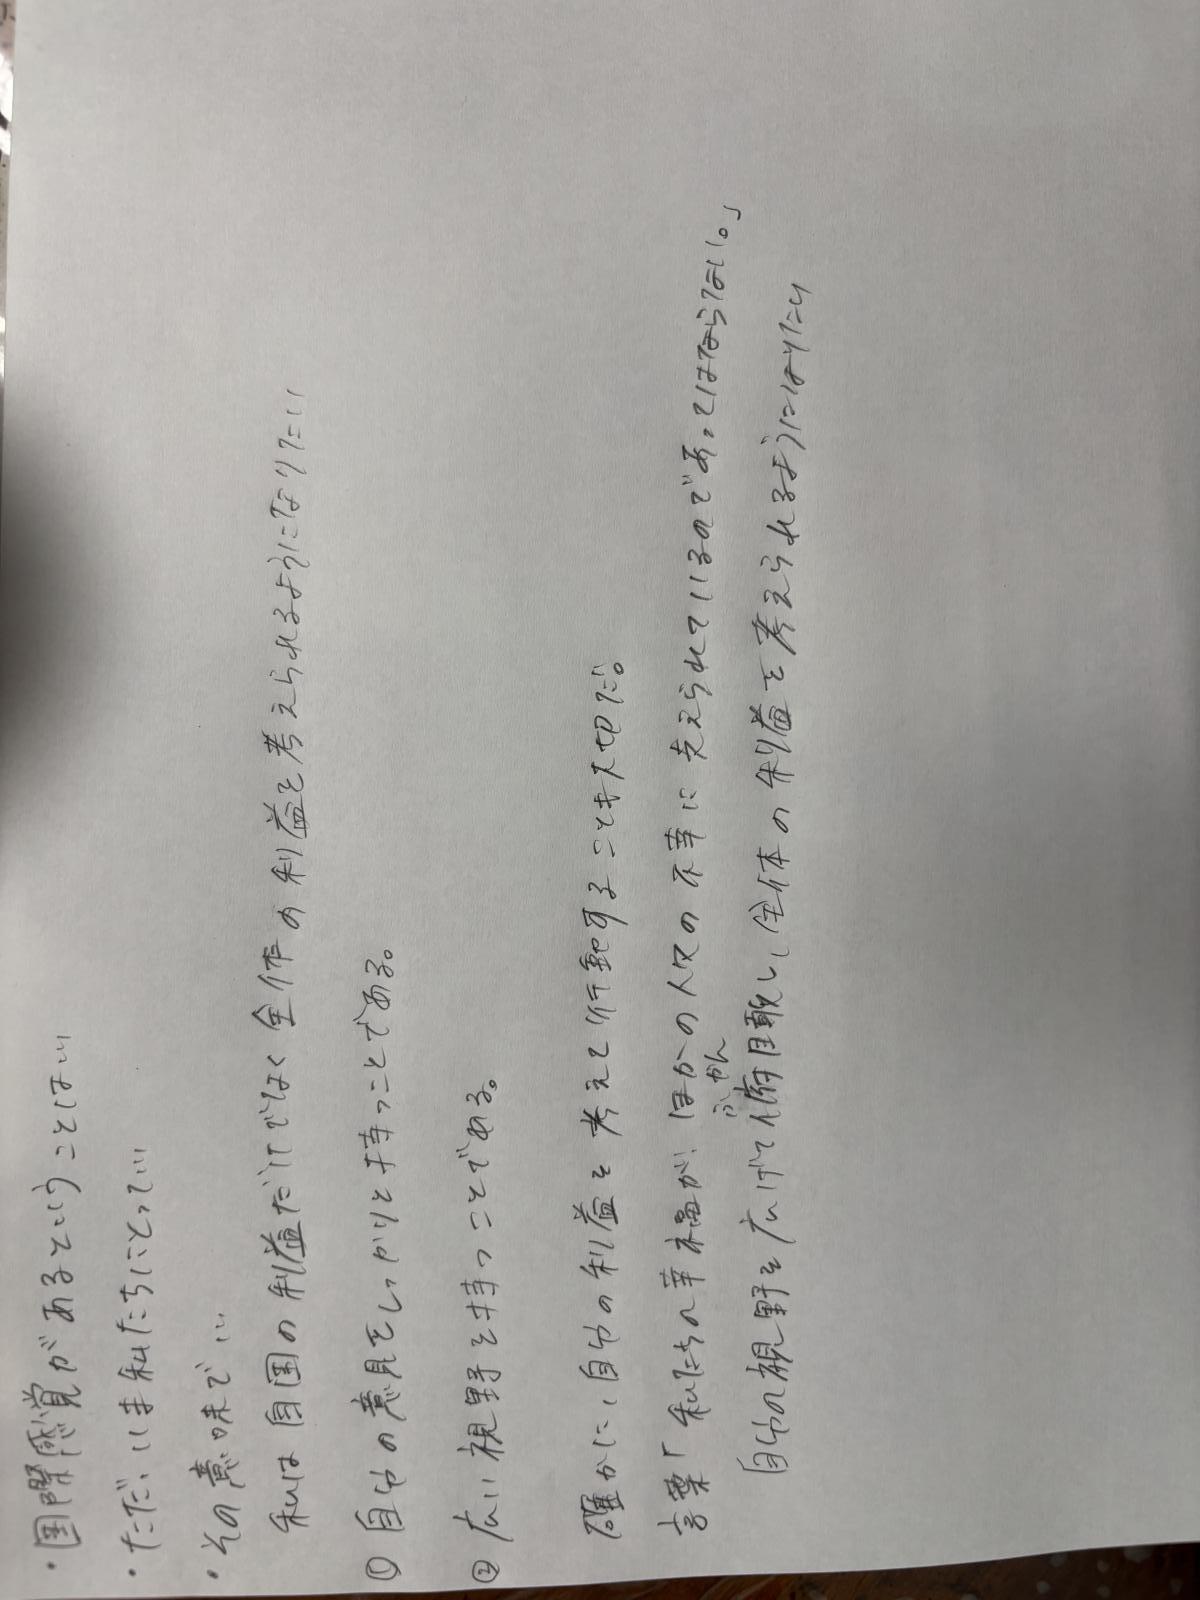 ・国際感覚があるということは…
・ただいま私たちにとって…
・その意味で…
私は自国の利益だけでなく全体の利益を考えられるようになりたい
① 自分の意見をしっかりと持つことである。
② 広い視野を持つことである。
確かに、自分の利益を考えて行動することも大切だ。
言葉「私たちの幸福が、ほかの人々の不幸に支えられているのであってはならない。」
ふかん
自分の視野を広げて俯瞰し、全体の利益を考えられるようになりたい